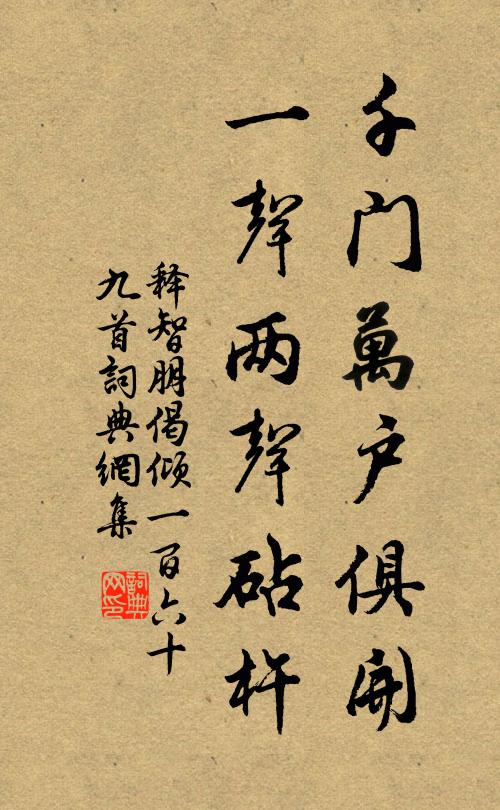 千门萬户俱開
一聲两聲砧杵
释智朋偈倾一百六十
九首詞典網集
詞典
网印